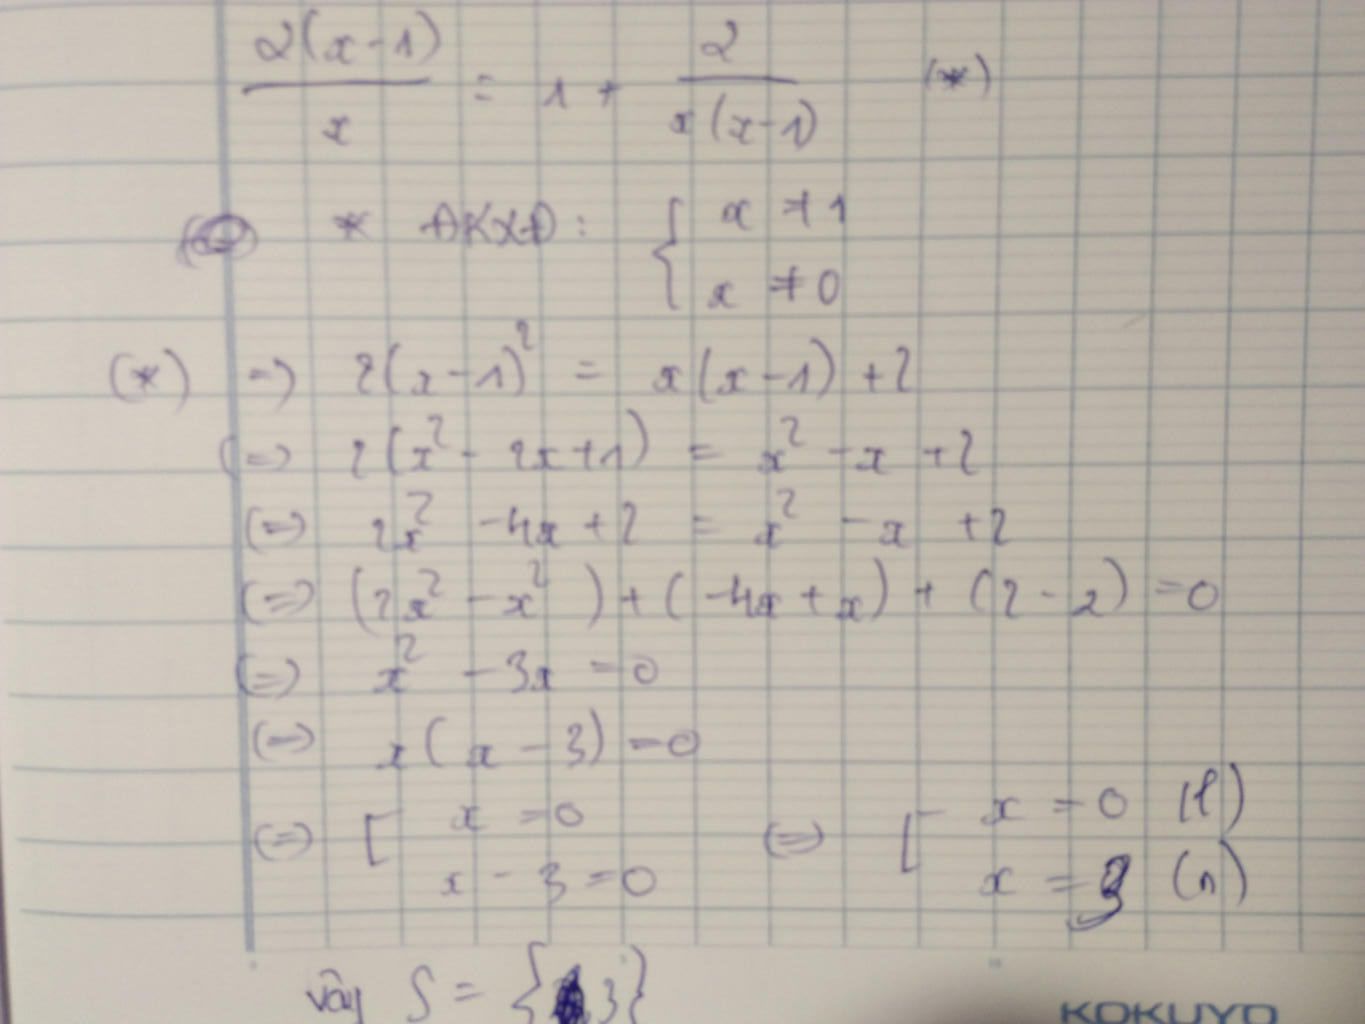 2(x-1)/x = 1 + 2/x(x-1) (*)
* ĐKXĐ: { x ≠ 1
x ≠ 0
(*) => 2(x-1)² = x(x-1) +2
(=> 2(x² - 2x+1) = x² - x +2
(=) 2x² -4x +2 = x² - x +2
(=) (2x² - x² ) + (-4x + x) + (2 - 2) = 0
(=) x² - 3x = 0
(=) x( x - 3) = 0
(=) [ x = 0 (=) [ x = 0 (l)
x - 3 = 0 x = 3 (n)
vậy S = { 3}
KOKUYO